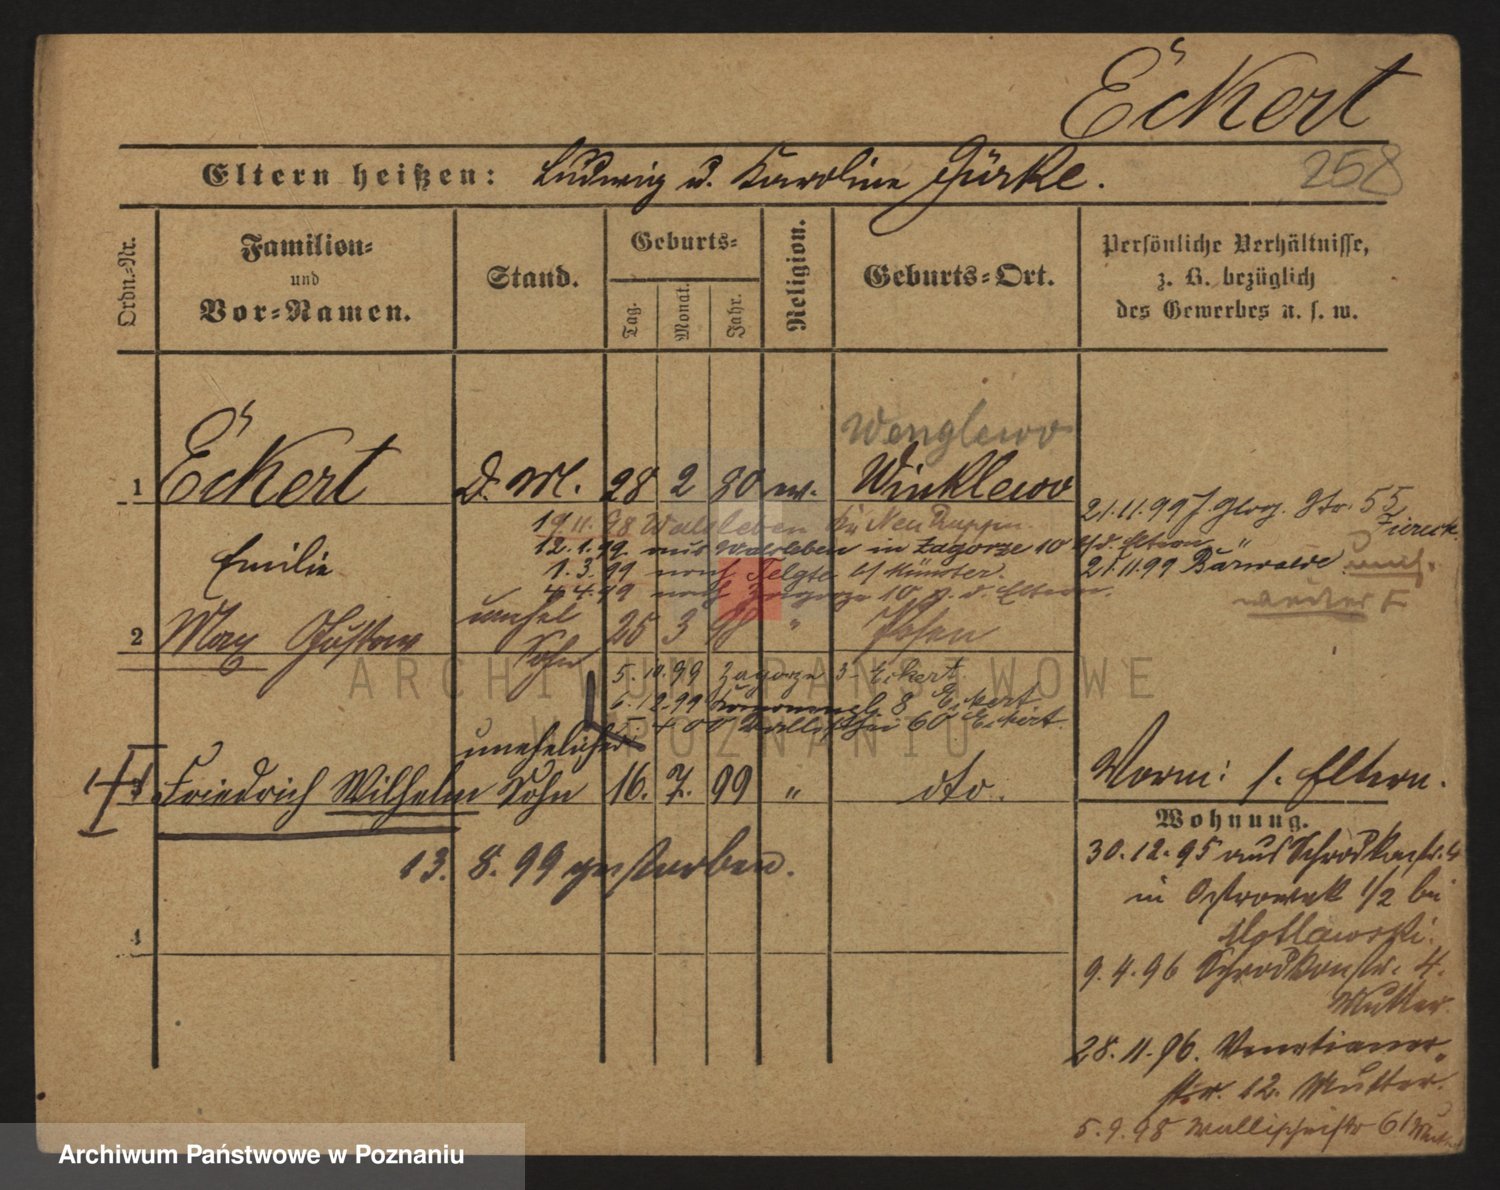 Eckert
258
Eltern heißen: Ludwig u. Karoline Gürke.
Ordn.-Nr.
Familien-
und
Vor-Namen.
Stand.
Geburts-
Tag.
Monat.
Jahr.
Religion.
Geburts-Ort.
Persönliche Verhältnisse,
z. B. bezüglich
des Gewerbes u. s. w.
Wenglewo
1 Eckert D. M. 28 2 80 ev. Winklewo
21.11.99 55
19.11.98 Walsleben Neu Ruppin
12.1.99 aus Walsleben in Zagorze 10 b/d. Eltern
Emilie
1.3.99 nach Telgte b/ Münster.
21.11.99 Bärwalde
4.4.99 nach Zagorze 10 d. Eltern.
unehel
2 Max Gustav Sohn 25 3 98 " Posen
5.10.99 Zagorze 3 Eckert
6.12.99 8 Eckert
00 Wallischei 60 Eckert.
unehelicher
3 Friedrich Wilhelm Sohn 16. 7. 99 " dto.
Vorm: s. Eltern.
13. 8. 99 gestorben.
Wohnung.
30.12.95 aus Schrodkastr. 4
in Ostrowek 1/2 bei
4
9.4.96 Schrodkastr. 4.
Mutter.
28.11.96. Venetianer-
str. 12. Mutter.
5.9.98 Wallischeistr 61
ARCHIWUM PAŃSTWOWE
W POZNANIU
Archiwum Państwowe w Poznaniu